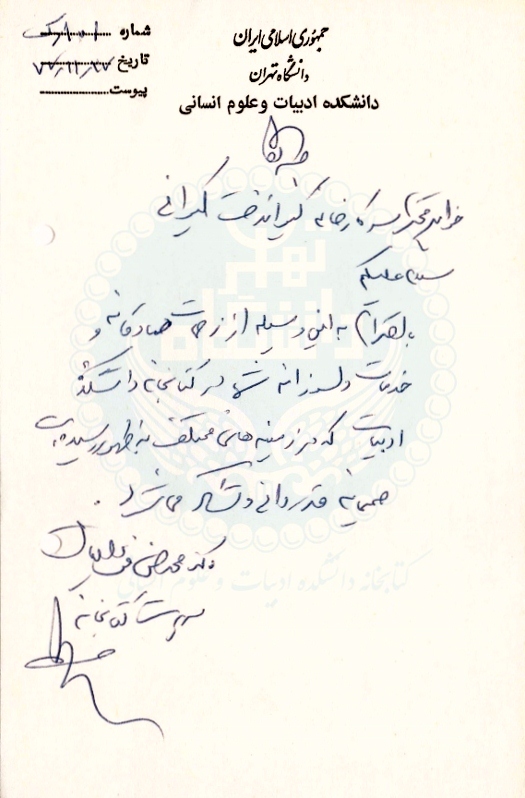 جمهوری اسلامی ایران
دانشگاه تهران
دانشکده ادبیات و علوم انسانی
شماره
تاریخ
پیوست
خواهر محترم سرکار خانم گیراندخت گیرانی
سلام علیکم
با احترام به این وسیله از زحمات صادقانه و
خدمات دلسوزانه شما در کتابخانه دانشکده
ادبیات که در زمینه‌های مختلف به ظهور رسیده
صمیمانه قدردانی و تشکر می‌شود.
دکتر محمدرضا
سرپرست کتابخانه
کتابخانه دانشکده ادبیات و علوم انسانی